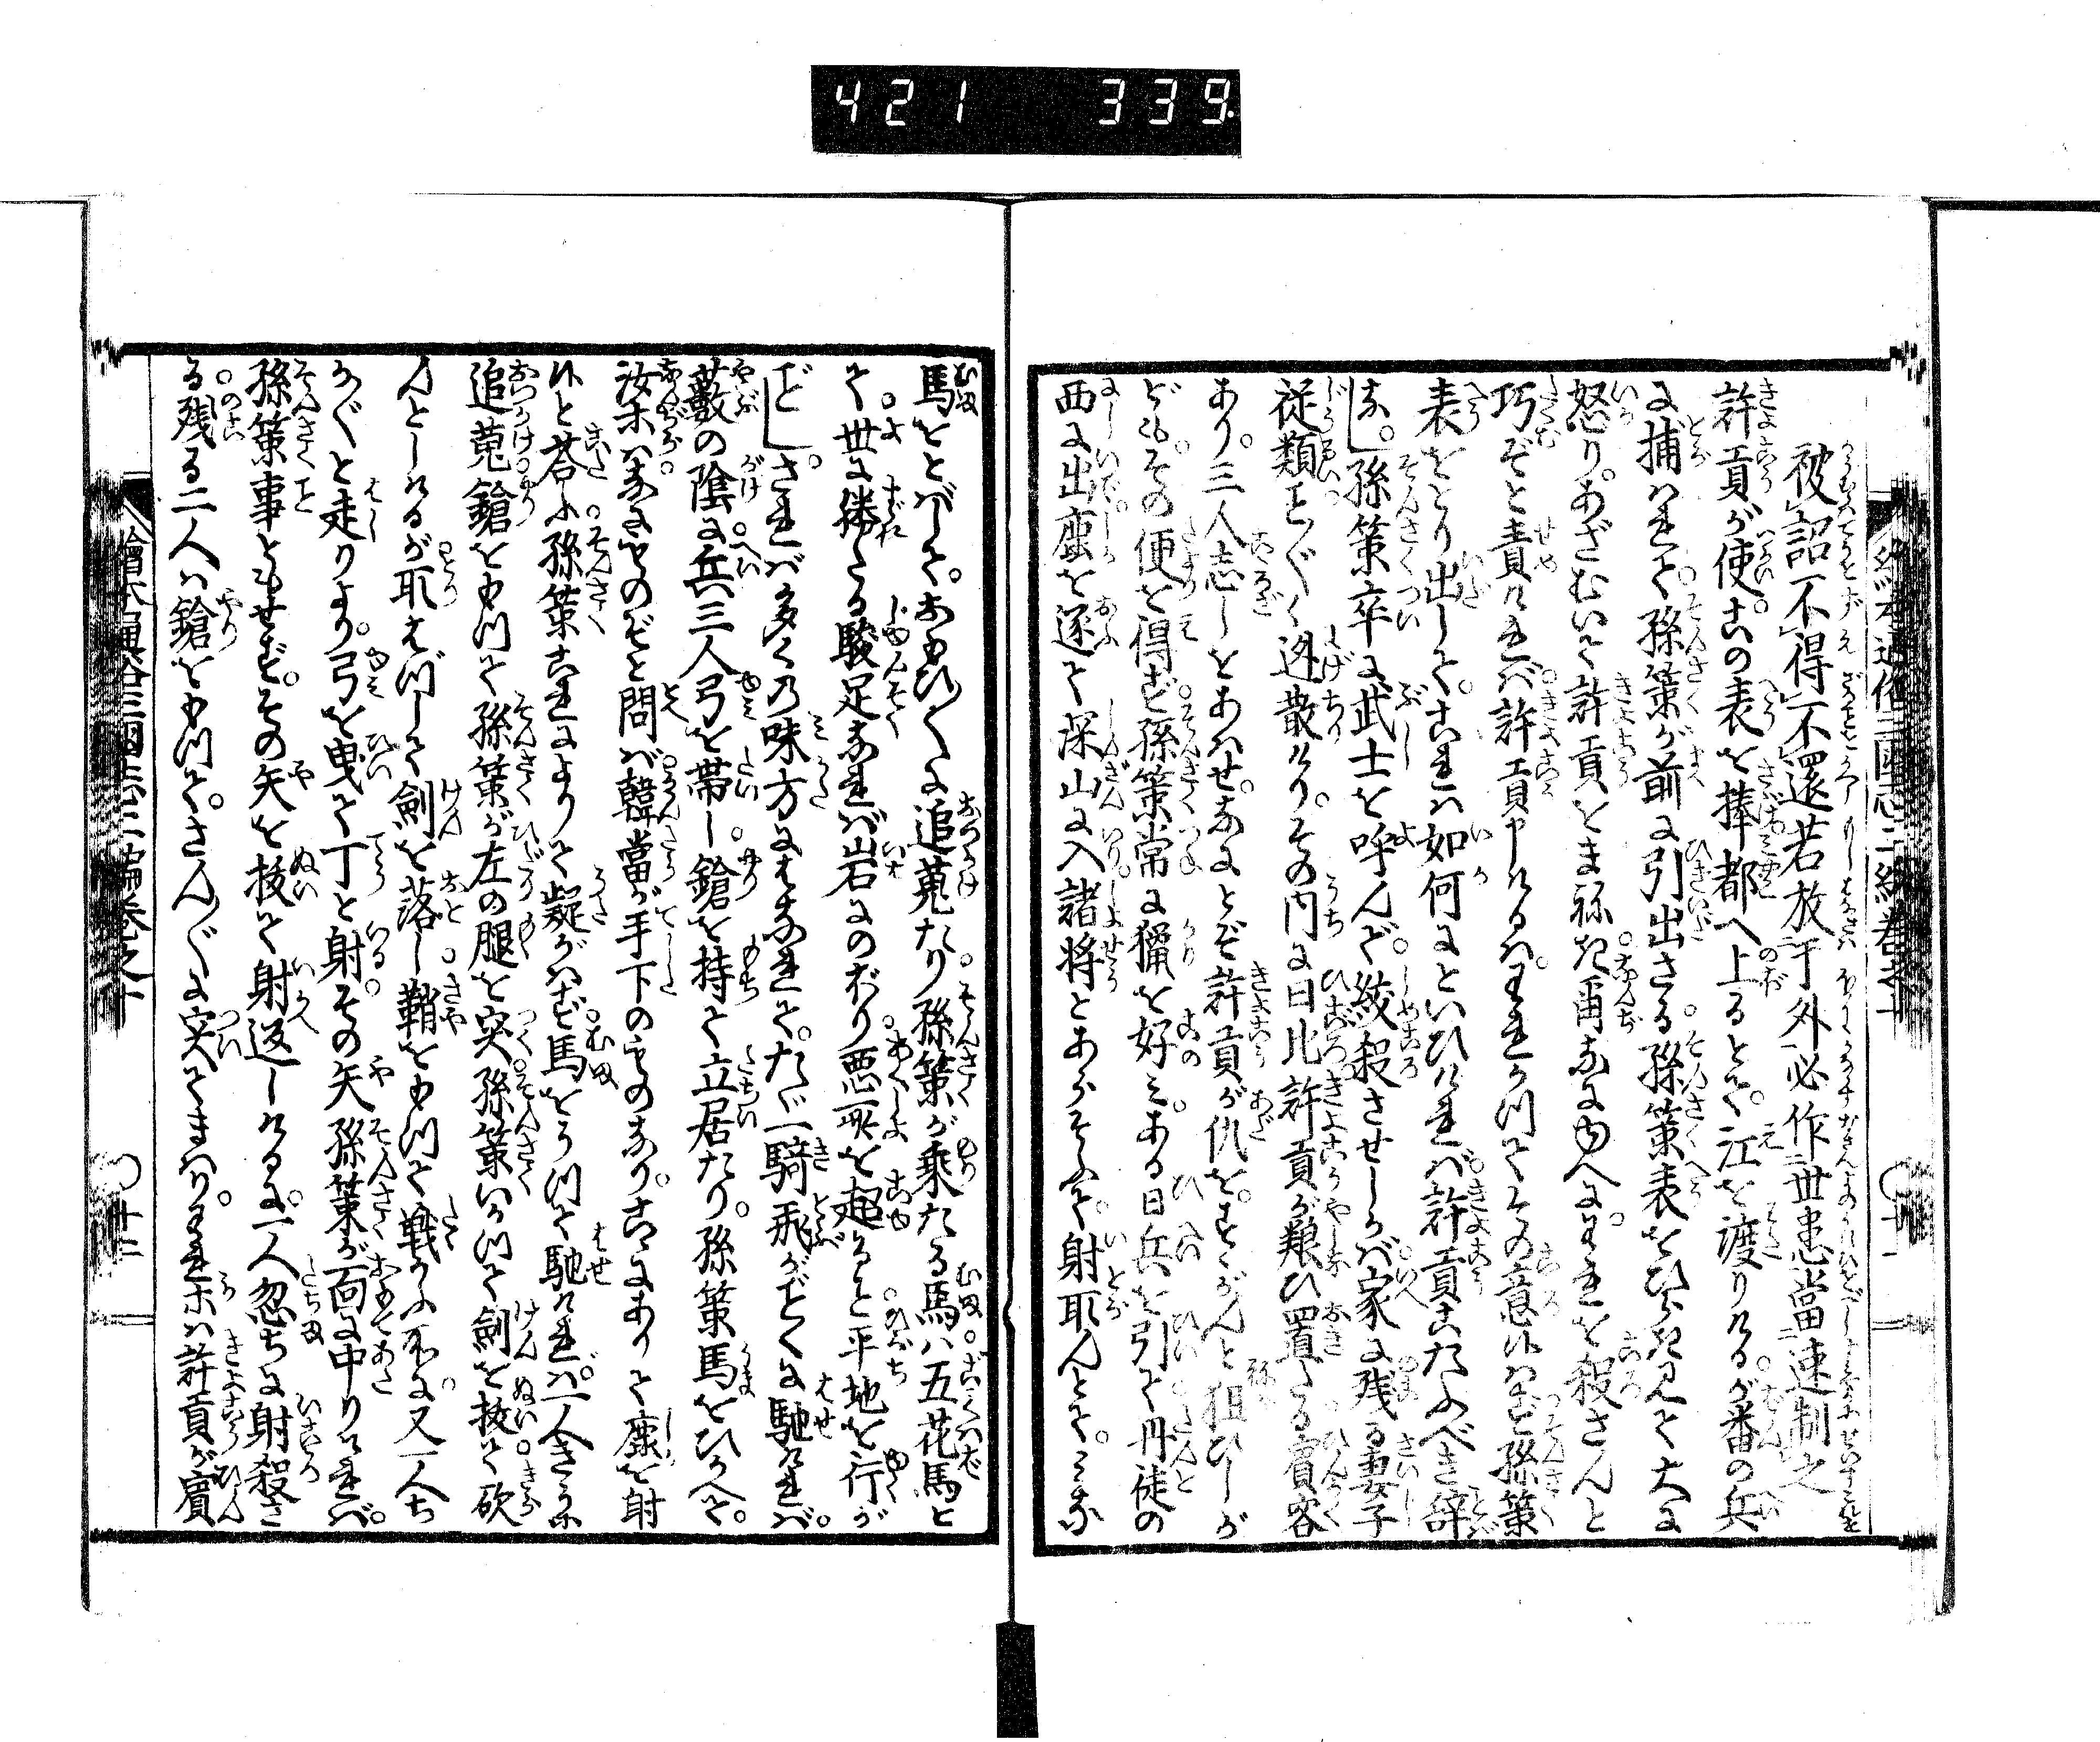 421 339
繪本通俗三國志二編巻之十 十二
被詔不得不還若放于外必作世患當速制之
許貢が使。この表を捧都へ上るとて。江を渡りけるが番の兵
に捕はれて孫策が前に引出さる孫策表をひらき見て大に
怒り。あざむいて許貢をまねき爾なにゆへに。われを殺さんと
巧ぞと責ければ許貢申けるは。われかつてその意候はず孫策
表をとり出して。これは如何にといひければ許貢こたふべき辞
なし。孫策卒に武士を呼んで。絞殺させしかば家に残る妻子
従類ことごとく迯散けり。その内に日比許貢が粮ひ置たる賓客
あり。三人志しをあはせ。なにとぞ許貢が仇を。すゝがんと狙ひしが
ども。その便を得ず孫策常に猟を好み。ある日兵を引て丹徒の
西に出鹿を逐て深山に入諸将とあらそふて。射取んとて。みな
馬をとばして。おもひ〳〵に追蒐たり孫策が乗たる馬は五花馬と
て。世に勝たる駿足なれば岩にのぼり悪所を超ると平地を行が
ごとし。されば多くの味方にはなれて。たゞ一騎飛がごとくに馳ければ。
藪の陰に兵三人弓を帯し。鎗を持て立居たり。孫策馬をひかへて。
汝等はなにものぞと問ば韓當が手下のものなり。こゝにありて鹿を射
候と荅ふ孫策これによりて疑がはず馬をうつて馳ければ。一人きうに
追蒐鎗をもつて孫策が左の腿を突孫策いかつて劍を抜て砍
んとしけるが取はづして劍を落し鞘をもつて戦かふ所に。又一人ち
かぐと走りより。弓を曳て丁と射その矢孫策が面に中りければ。
孫策事ともせず。その矢を抜て射返しけるに。一人忽ちに射殺さ
る残る二人は鎗をもつて。さん〴〵に突てまはり。われ等は許貢が賓
繪本通俗三國志二編巻之十 十二